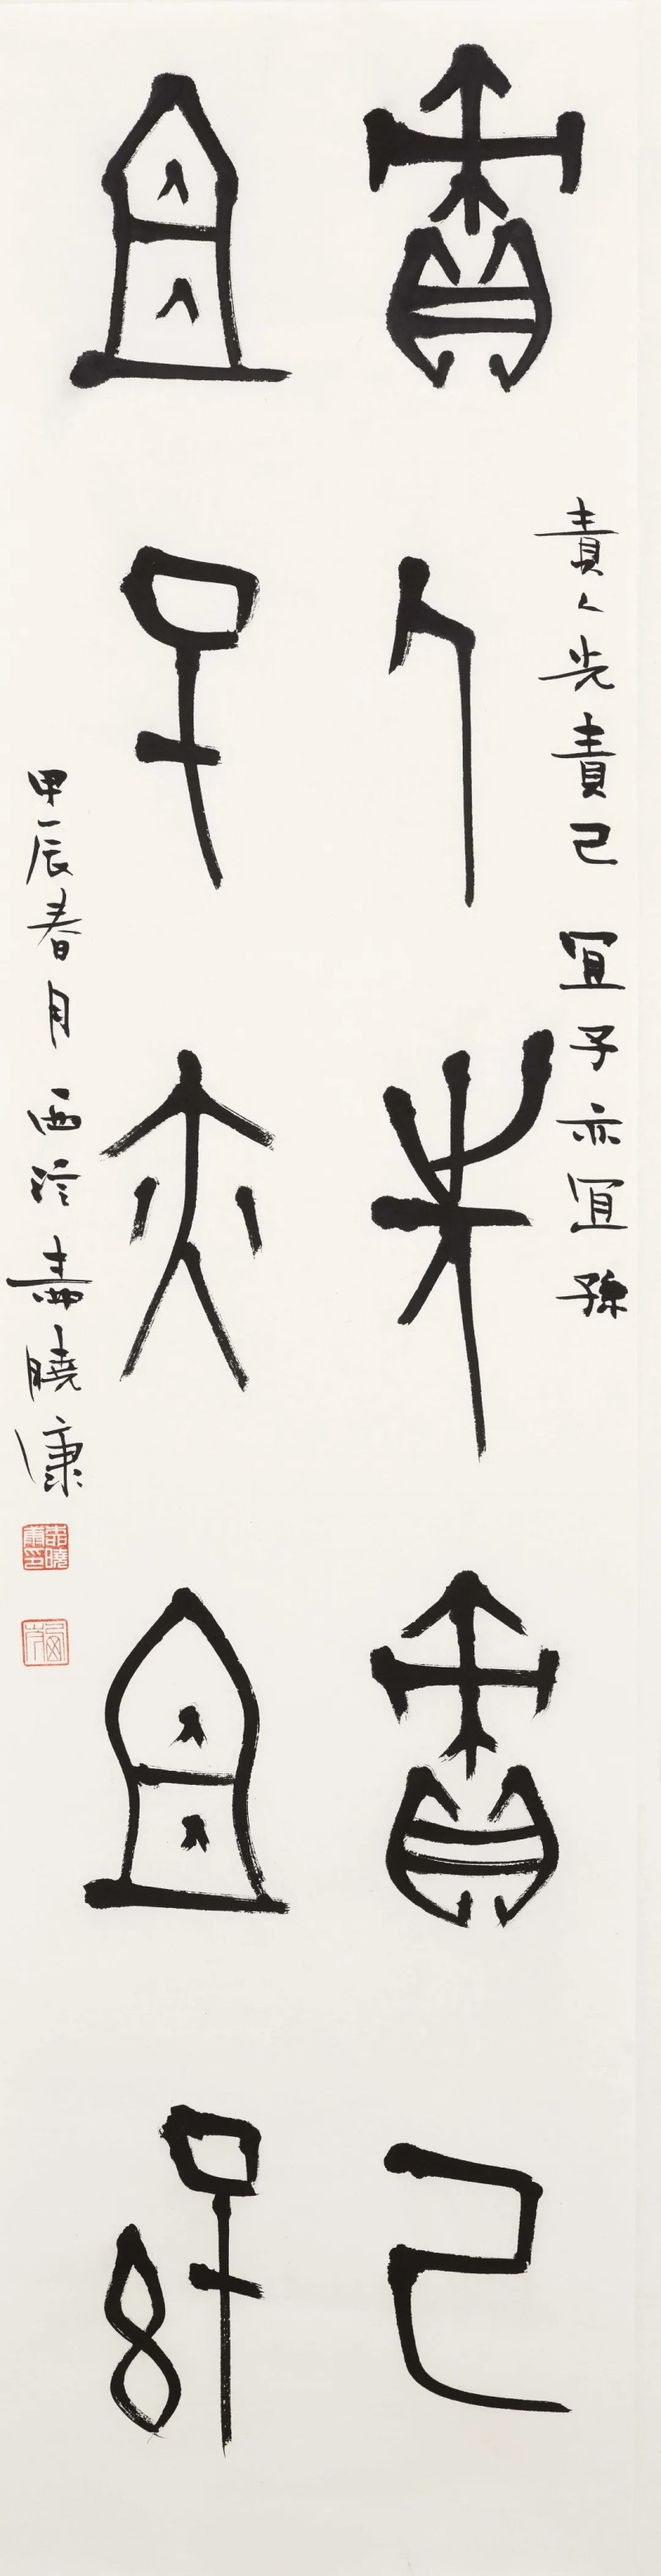 責人先責己
宜子亦宜孫
責人先責己 宜子亦宜孫
甲辰春月西泠壽曉康